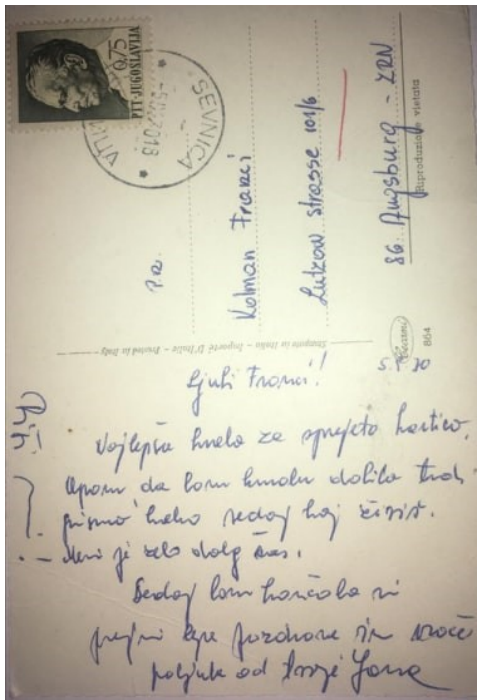 0,75
PTT-JUGOSLAVIJA
SEVNICA
p.r.
Kolman Franci
Lutzow strasse 101/6
86. Augsburg - ZRN
Riproduzione vietata
Stampato in Italia - Importé D'Italie - Printed in Italy
864
Ljubi Franci!
Najlepša hvala za sprejeto kartico,
upam da bom kmalu dobila tudi
pismo kako sedaj kaj živiš.
Meni je zelo dolg čas.
Sedaj bom končala in
prejmi lepe pozdrave in vroče
poljube od tvoje